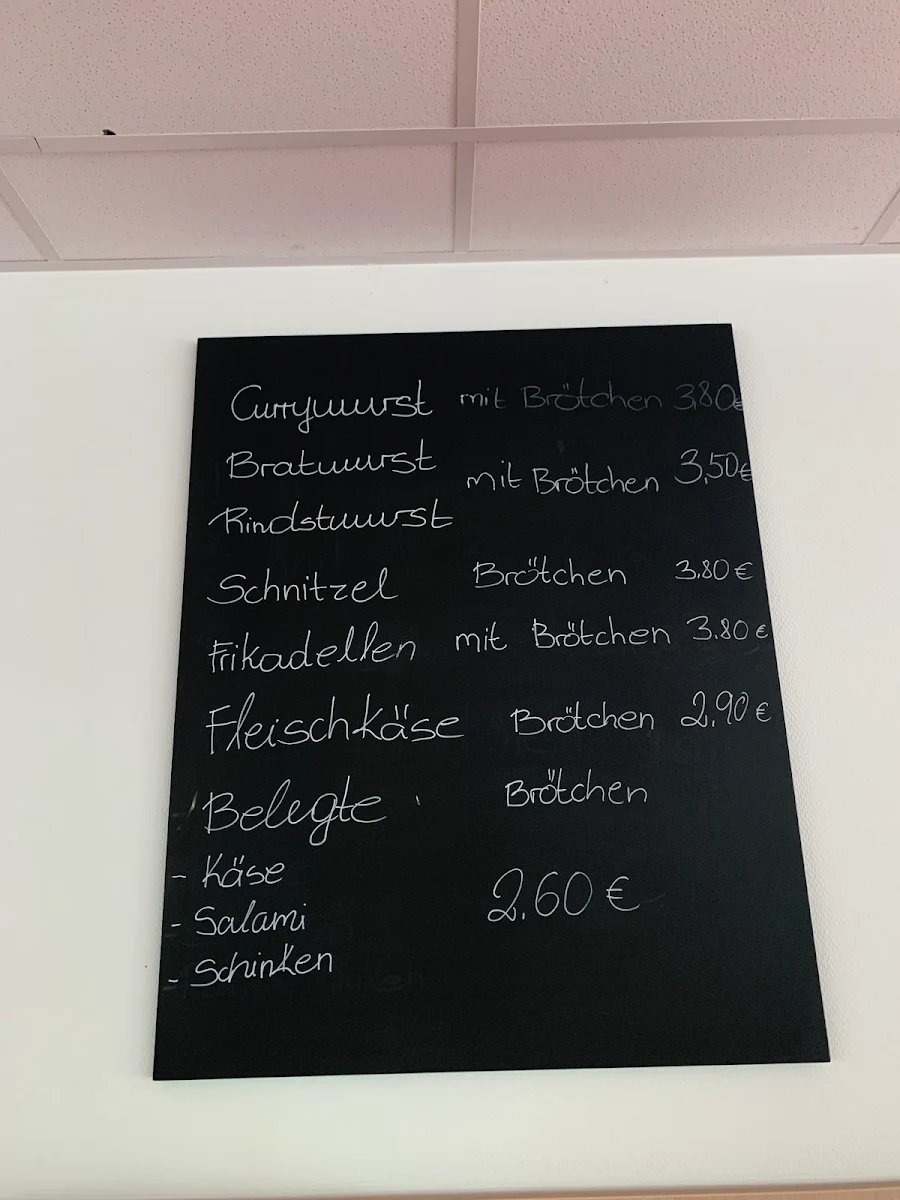 Currywurst mit Brötchen 3,80€
Bratwurst mit Brötchen 3,50€
Rindstwurst
Schnitzel Brötchen 3.80€
Frikadellen mit Brötchen 3.80€
Fleischkäse Brötchen 2.90€
Belegte Brötchen
- Käse
- Salami 2.60€
- Schinken